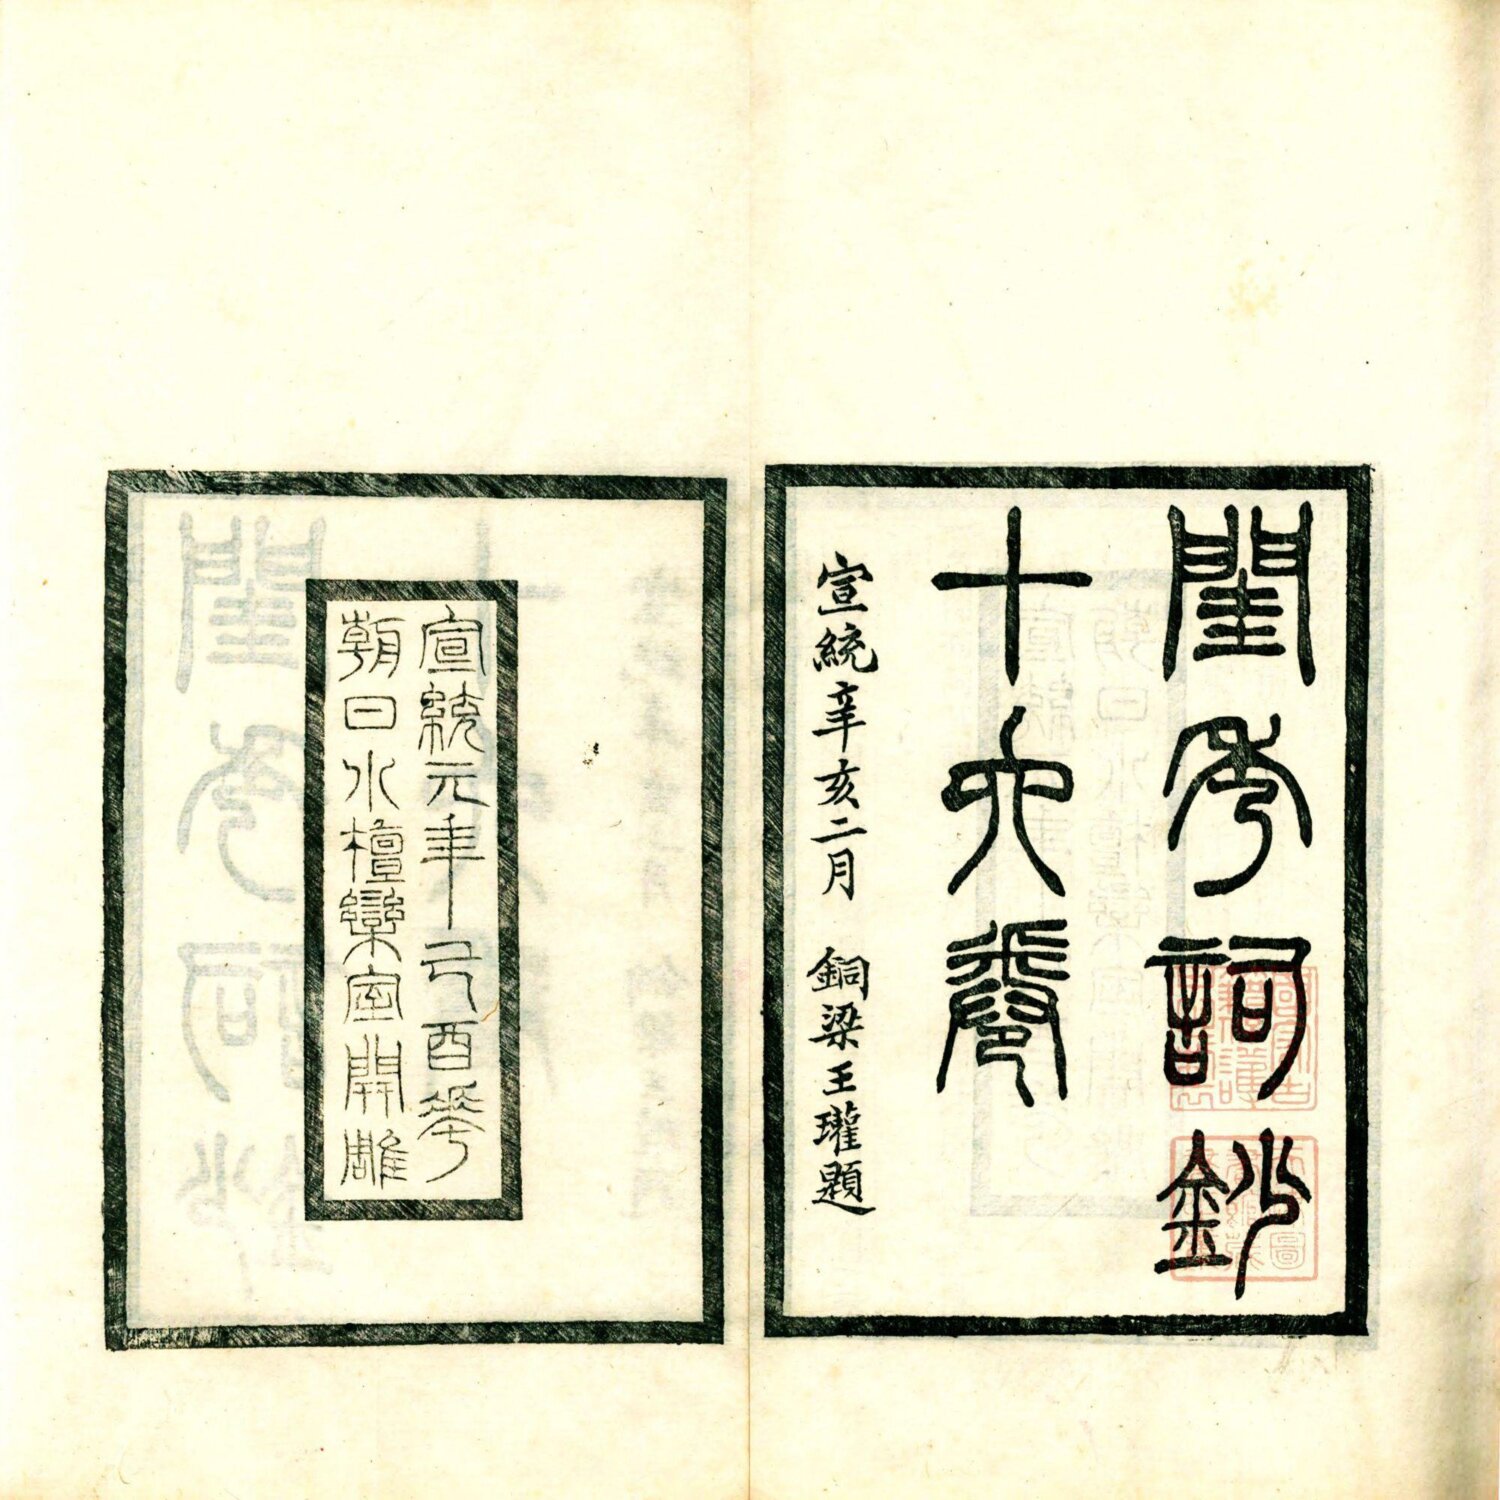 閨秀詞鈔
十六卷
宣統辛亥二月 銅梁王瓘題
宣統元年己酉花
朝日小檀欒室開雕